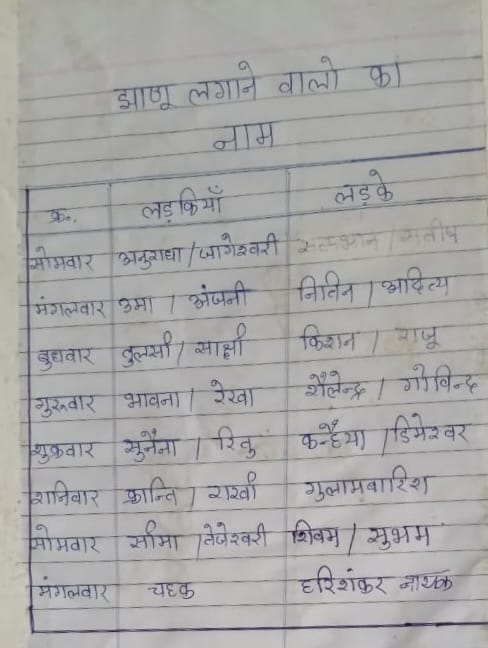 झाणू लगाने वालो का
नाम
क्र.. लड़कियाँ लड़के
सोमवार अनुराधा / जागेश्वरी / सतीष
मंगलवार उमा / अंजनी नितिन / आदित्य
बुधवार तुलसी / साक्षी किशन / राजू
गुरूवार भावना / रेखा शैलेन्द्र / गोविन्द
शुक्रवार सुनैना / रितु कन्हैया / डिमेश्वर
शनिवार क्रान्ति / राखी गुलामवारिश
सोमवार सीमा / तेजेश्वरी शिवम / सुभम
मंगलवार चहक हरिशंकर नायक